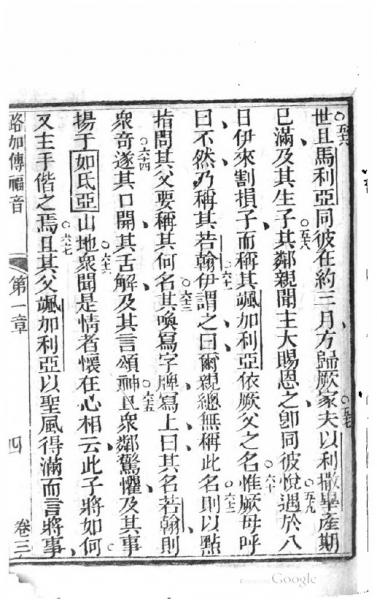 世且馬利亞同彼在約三月方歸厥家夫以利撒畢產期
五六
五七
已滿及其生子其鄰親聞主大賜恩之卽同彼悅遇於八
五八
五九
日伊來割損子而稱其颯加利亞依厥父之名惟厥母呼
六十
曰不然乃稱其若翰伊謂之曰爾親總無稱此名則以點
六一
六二
指問其父要稱其何名其喚寫字牌寫上曰其名若翰則
六三
眾奇遂其口開其舌解及其言頌神民眾鄰驚懼及其事
六四
六五
揚于如氐亞山地眾聞是情者懷在心相云此子將如何
六六
又主手偕之焉且其父颯加利亞以聖風得滿而言將事
六七
路加傳福音
第一章
四
卷三
Google